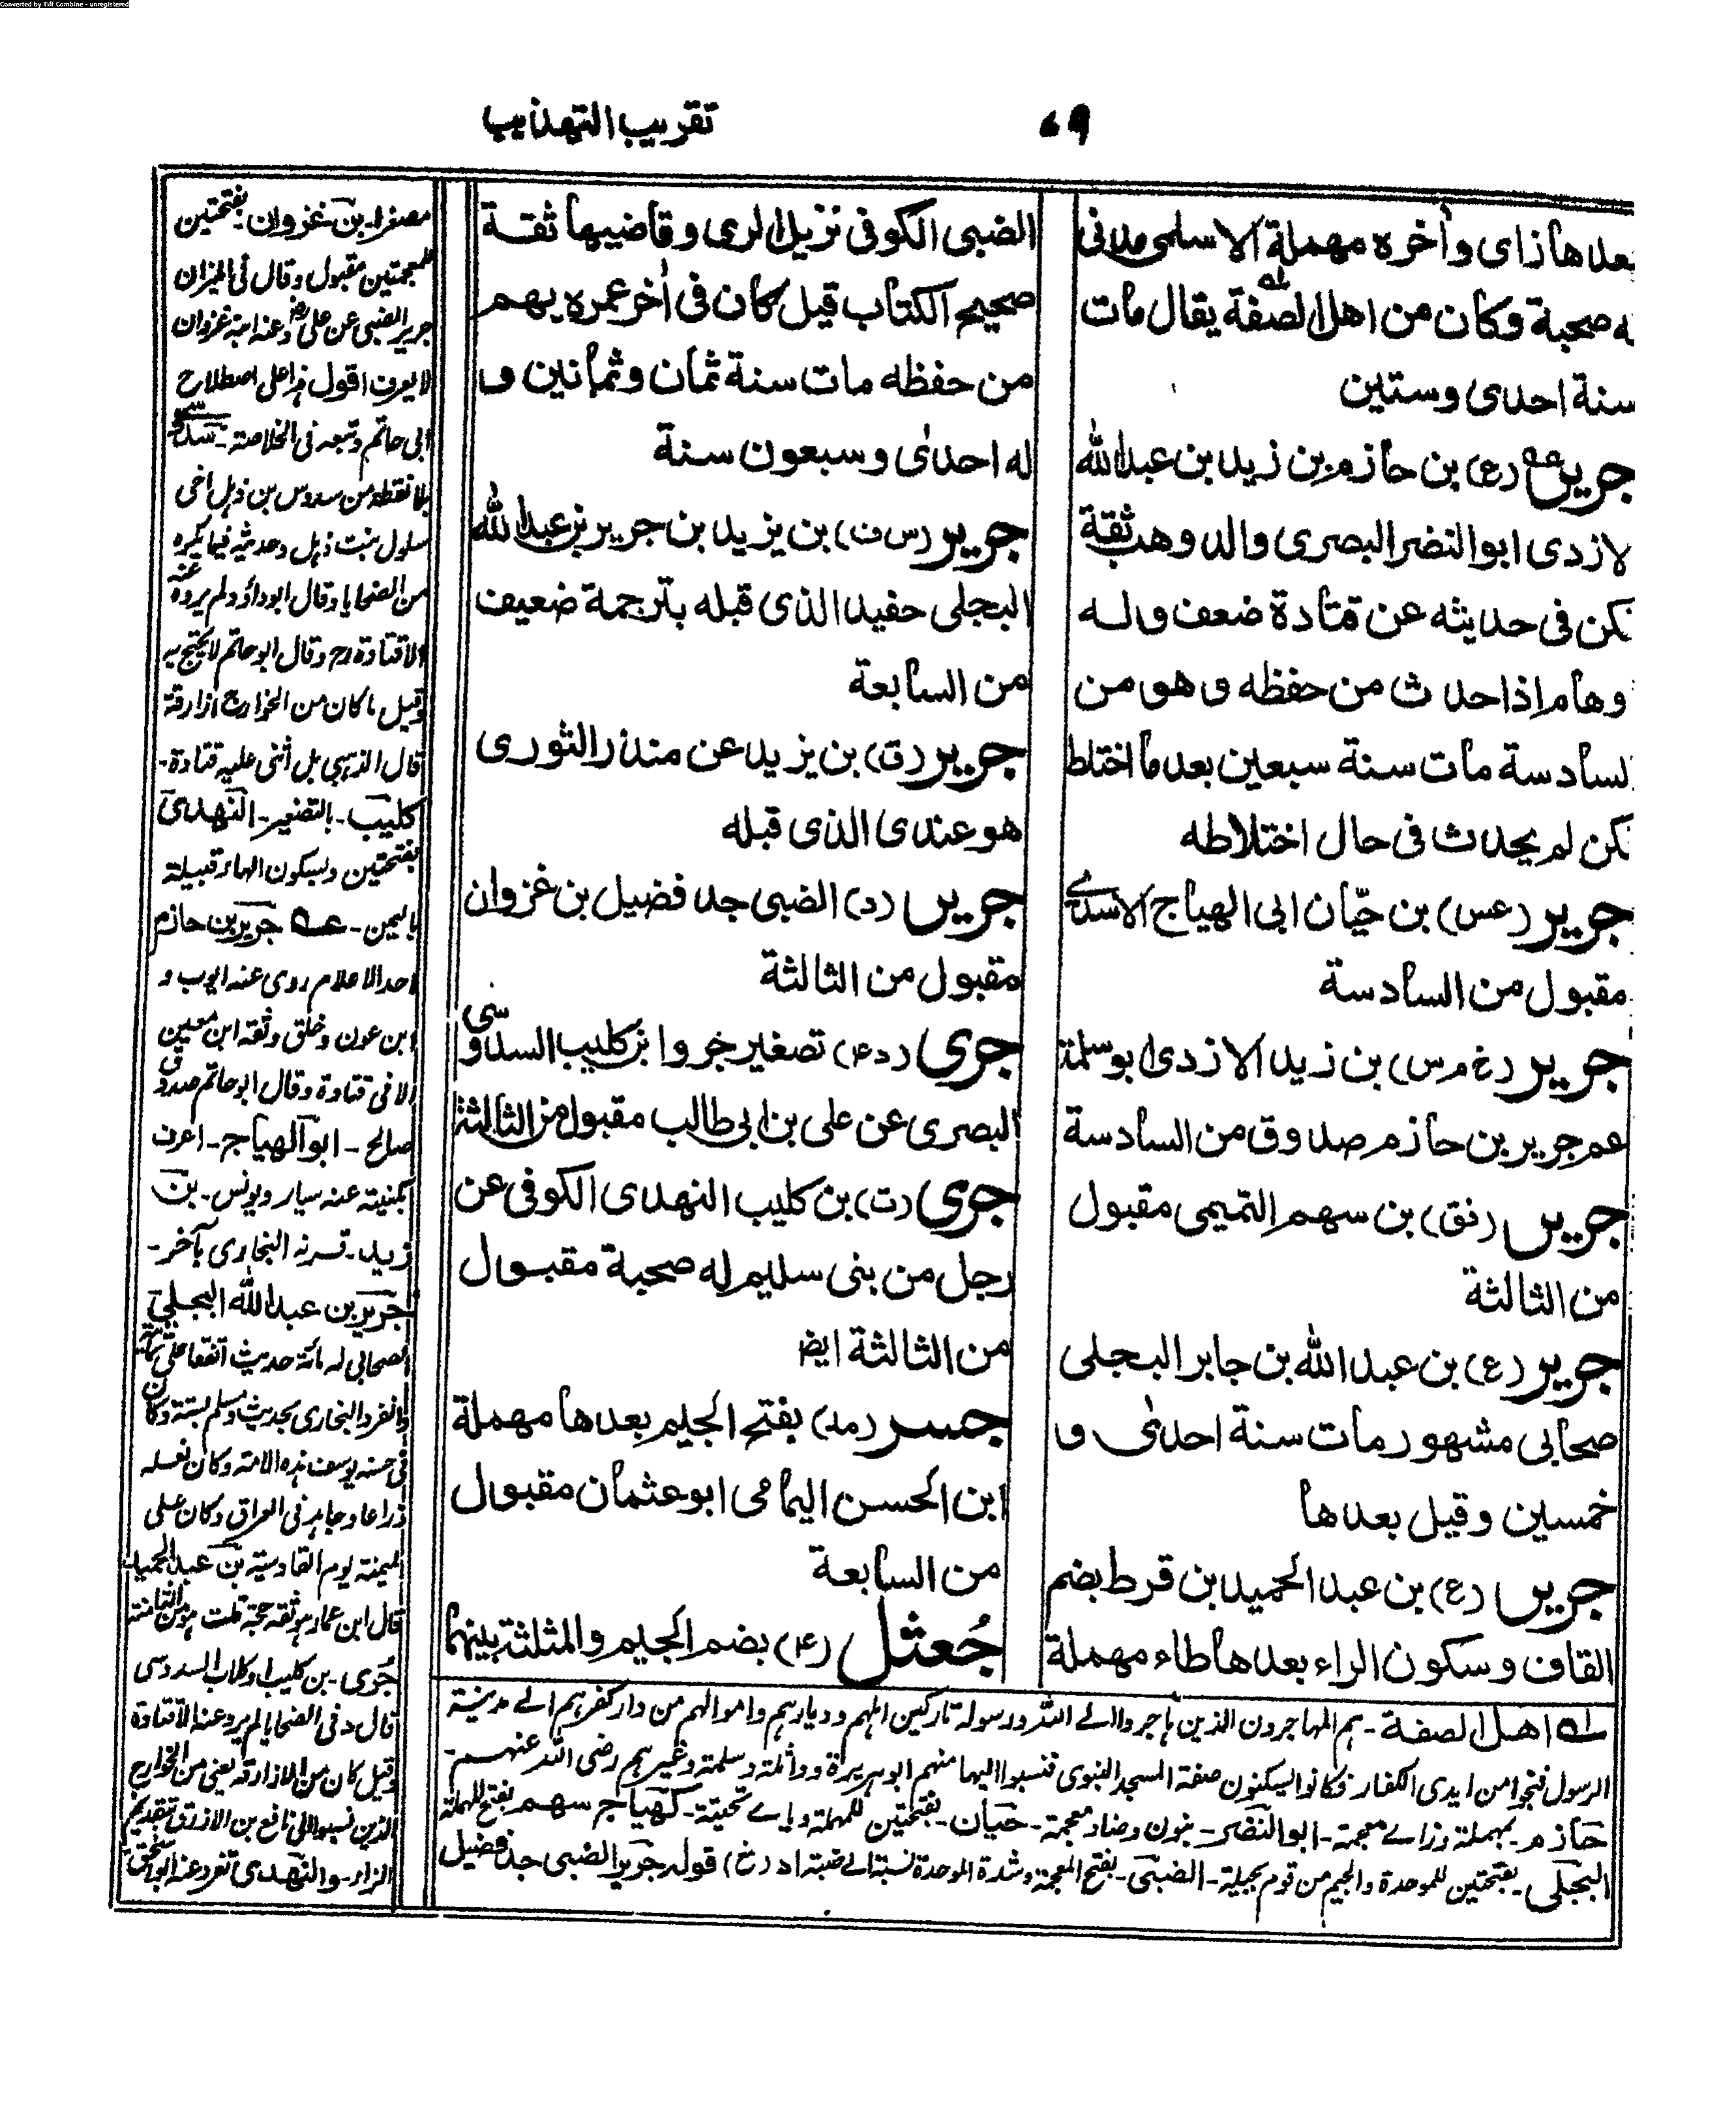 Converted by Tiff Combine - unregistered
تقريب التهذيب
٦٩
بعدها زاى وآخره مهملة الاسلمى مدنى
له صحبة وكان من اهل الصفة يقال مات
سنة احدى وستين
جرير (ع) بن حازم بن زيد بن عبدالله
الازدى ابو النضر البصرى والد وهب ثقة
لكن فى حديثه عن قتادة ضعف وله
اوهام اذا حدث من حفظه وهو من
السادسة مات سنة سبعين بعد ما اختلط
لكن لم يحدث فى حال اختلاطه
جرير (عس) بن حيّان ابى الهياج الاسدى
مقبول من السادسة
جرير (خ م س) بن زيد الازدى ابو سلمة
عم جرير بن حازم صدوق من السادسة
جرير (فق) بن سهم التميمى مقبول
من الثالثة
جرير (ع) بن عبد الله بن جابر البجلى
صحابى مشهور مات سنة احدى و
خمسين وقيل بعدها
جرير (ع) بن عبد الحميد بن قرط بضم
القاف وسكون الراء بعدها طاء مهملة
الضبى الكوفى نزيل الرى وقاضيها ثقة
صحيح الكتاب قيل كان فى اٰخر عمره يهم
من حفظه مات سنة ثمان وثمانين و
له احدى وسبعون سنة
جرير (س ق) بن يزيد بن جرير بن عبد الله
البجلى حفيد الذى قبله بترجمة ضعيف
من السابعة
جرير (ق) بن يزيد عن منذر الثورى
هو عندى الذى قبله
جرير (د) الضبى جد فضيل بن غزوان
مقبول من الثالثة
جرى (د ۴) تصغير جرو ابن كليب السدوسى
البصرى عن على بن ابى طالب مقبول من الثالثة
جرى (ت) بن كليب النهدى الكوفى عن
رجل من بنى سليم له صحبة مقبول
من الثالثة ايض
جسر (مد) بفتح الجيم بعدها مهملة
ابن الحسن اليمامى ابو عثمان مقبول
من السابعة
جُعثل (۴) بضم الجيم والمثلثة بينهما
مصغرا۔ بن غزوان۔ بفتحتين
لمعجمتين مقبول وقال فى الميزان
جرير الضبى عن على رض وعنه ابنه غزوان
لا يعرف اقول هذا على اصطلاح
ابى حاتم وتبعه فى الخلاصة۔
بلا نقطه من سدوس بن ذهل اخى
سلول بنت ذهل وحديثه فيما يكره
من الضحايا وقال ابو داؤد ولم يرو عنه
الا قتادة رح وقال ابو حاتم لا يحتج به
وقيل ما كان من الخوارج ازارقة
قال الذهبى بل أثنى عليه قتادة۔
كليب۔ بالتصغير۔ النهدى
بفتحتين وبسكون الهاء قبيلة
باليمن۔ جرير بن حازم
احد الاعلام روى عنه ايوب و
ابن عون وخلق وثقه ابن معين
الا فى قتادة وقال ابو حاتم صدوق
صالح۔ ابو الهياج۔ اعرف
بكنيته عنه سيار ويونس۔ بن
زيد۔ قرنه البخارى بآخر۔
جرير بن عبد الله البجلى
الصحابى له مائة حديث اتفقا على
وانفرد البخارى بحديث ومسلم بستة وكان
فى حسنه يوسف هذه الامة وكان نعله
ذراعا وجاهد فى العراق وكان على
الميمنة يوم القادسية بن عبد الحميد
قال ابن عمار هو ثقة حجة قلت هو من الثامنة
جرى۔ بن كليب او كلاب السدوسى
قال د فى الضحايا لم يرو عنه الا قتادة
وقيل كان من الازارقة يعنى من الخوارج
الذين نسبوا الى نافع بن الازرق بتقديم
الزاء۔ والنهدى تفرد عنه ابو اسحق
له اهل الصفة۔ هم المهاجرون الذين هاجروا الى الله ورسوله تاركين اهلهم وديارهم واموالهم من دار كفرهم الى مدينة
الرسول فنجوا من ايدى الكفار وكانوا يسكنون صفة المسجد النبوى فنسبوا اليها منهم ابو هريرة وواثلة وسلمة وغيرهم رضى الله عنهم۔
حازم۔ بمهملة وزاى معجمة۔ ابو النضر۔ بنون وضاد معجمة۔ حيان۔ بفتحتين للمهملة وياء تحتية۔ كهياج سهم بفتح المهملة
البجلى۔ بفتحتين للموحدة والجيم من قوم بجيلة۔ الضبى۔ بفتح المعجمة وشدة الموحدة نسبة الى ضبة اد (خ) قوله جرير الضبى جد فضيل